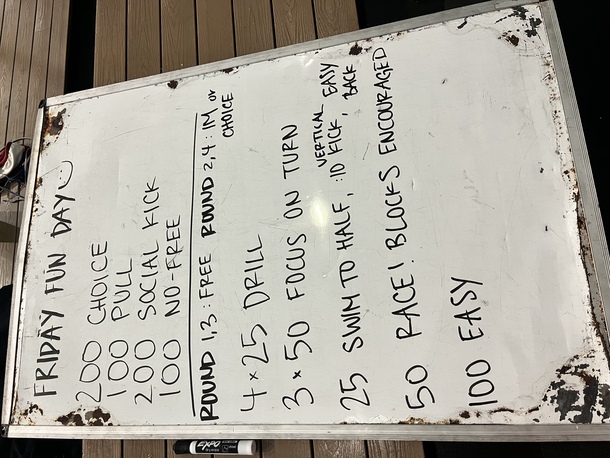 FRIDAY FUN DAY
200 CHOICE
100 PULL
200 SOCIAL KICK
100 NO-FREE
ROUND 1,3: FREE ROUND 2,4: IM or CHOICE
4×25 DRILL
3×50 FOCUS ON TURN
25 SWIM TO HALF, :10 VERTICAL KICK, EASY BACK
50 RACE! BLOCKS ENCOURAGED
100 EASY
EXPO